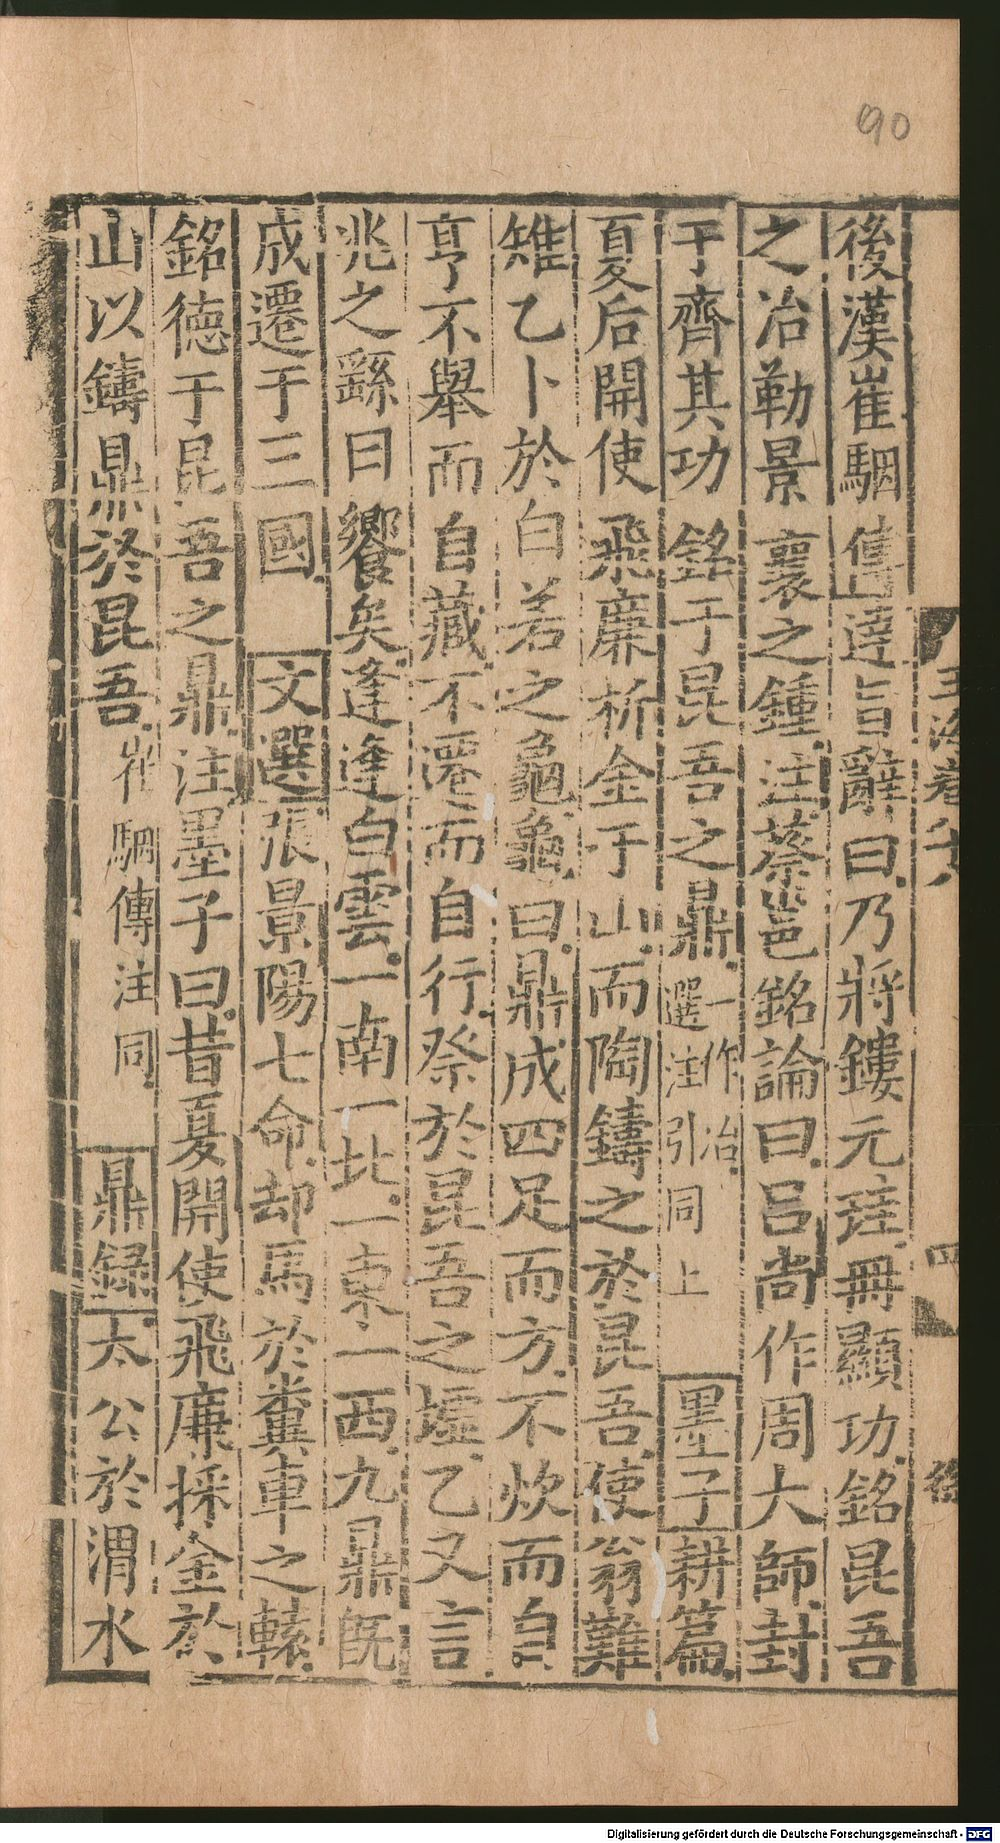 90
後漢崔駰傳達旨辭曰乃將鏤元珪冊顯功銘昆吾
之冶勒景襄之鍾注蔡邕銘論曰呂尚作周大師封
于齊其功銘于昆吾之鼎一作冶選注引同上墨子耕篇
夏后開使飛廉析金于山而陶鑄之於昆吾使翁難
雉乙卜於白若之龜龜曰鼎成四足而方不炊而自
亨不舉而自藏不遷而自行祭於昆吾之墟乙又言
兆之繇曰饗矣逢逢白雲一南一北一東一西九鼎既
成遷于三國文選張景陽七命却馬於糞車之轅
銘德于昆吾之鼎注墨子曰昔夏開使飛廉採金於
山以鑄鼎於昆吾崔駰傳注同鼎録太公於渭水
玉海卷
四
Digitalisierung gefördert durch die Deutsche Forschungsgemeinschaft - DFG